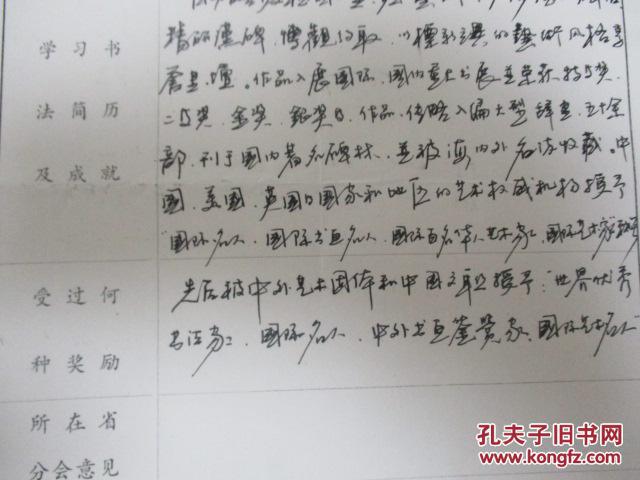 学习书
法简历
及成就
精研唐碑,博观约取,以标新立异的艺术风格享
誉书坛。作品入展国际、国内重大书展并荣获特等奖、
二等奖、金奖、银奖等,作品、传略入编大型辞书五十余
部,刊于国内著名碑林,并被海内外名流收藏。中
国、美国、英国等国家和地区的艺术权威机构授予
"国际名人、国际书画名人、国际百名华人艺术家、国际艺术
受过何
种奖励
先后被中外艺术团体和中国文联授予:"世界优秀
书法家、国际名人、中外书画鉴赏家、国际艺术名人"
所在省
分会意见
孔夫子旧书网
www.kongfz.com